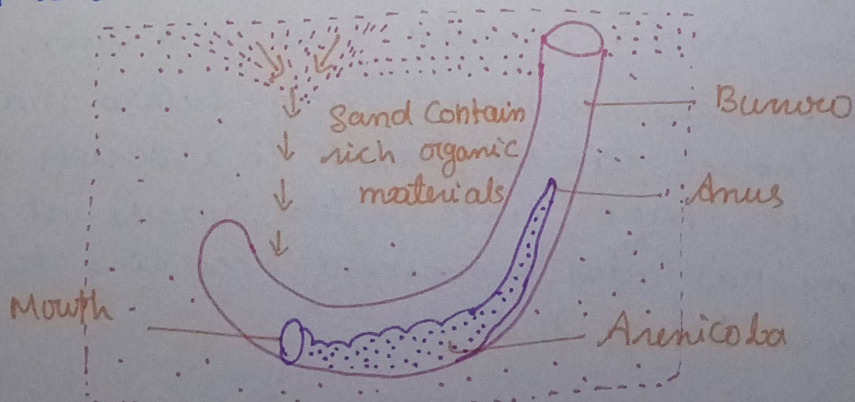 Sand Contain
rich organic
materials
Burrow
Anus
Mouth
Arenicola